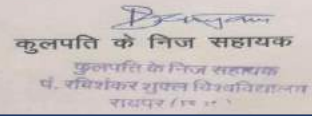 कुलपति के निज सहायक
कुलपति के निज सहायक
पं. रविशंकर शुक्ल विश्वविद्यालय
रायपुर